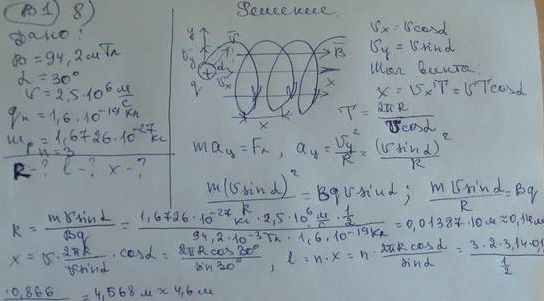 В1 8) Решение.
Дано:
B = 94,2 мТл
α = 30°
v = 2,5·10⁶ м/с
qₙ = 1,6·10⁻¹⁹ Кл
mₚ = 1,6726·10⁻²⁷ кг
n = 3
R - ? l - ? x - ?
y v B
v_y α
v_x x
q
x
v_x = v cosα
v_y = v sinα
Шаг винта:
x = v_x T = vT cosα
T = 2πR / v cosα
ma_y = Fₙ, a_y = v_y² / R = (v sinα)² / R
m(v sinα)² / R = Bqv sinα; m v sinα / R = Bq
R = m v sinα / Bq = 1,6726·10⁻²⁷ кг · 2,5·10⁶ м/с · 1/2 / 94,2·10⁻³ Тл · 1,6·10⁻¹⁹ Кл = 0,01387·10 м ≈ 0,14 м
x = v · 2πR / v sinα · cosα = 2πR cos 30° / sin 30°, l = n·x = n · 2πR cosα / sinα = 3·2·3,14·0,1
1/2
·0,866 = 4,568 м ≈ 4,6 м